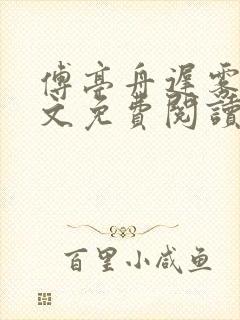 傅亭舟遲雾
文免費閱讀
百里小咸鱼